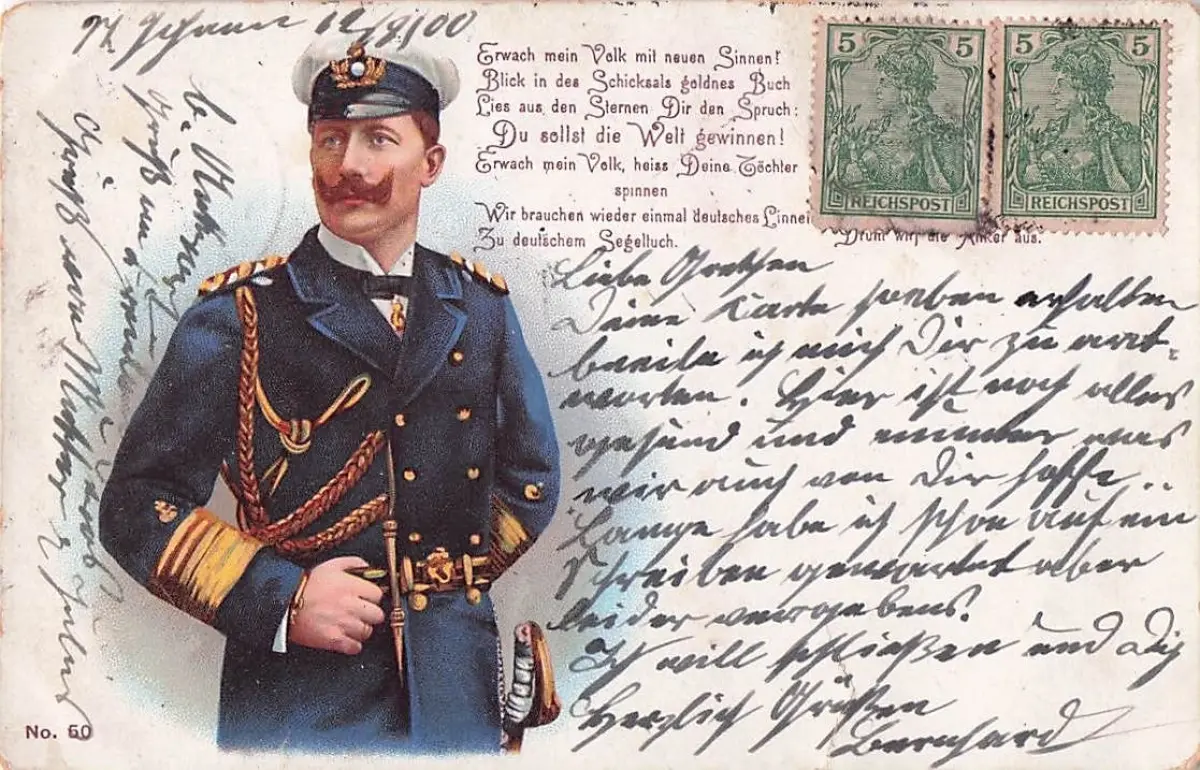 12/9/00
Erwach mein Volk mit neuen Sinnen!
Blick in des Schicksals goldnes Buch
Lies aus den Sternen Dir den Spruch:
Du sollst die Welt gewinnen!
Erwach mein Volk, heiss Deine Töchter
spinnen
Wir brauchen wieder einmal deutsches Linnen
Zu deutschem Segeltuch. Drum wirf die Anker aus.
5 5
REICHSPOST
5 5
REICHSPOST
Liebe Gretchen
Deine Karte soeben erhalten
beeile ich mich Dir zu ant-
worten. Hier ist noch alles
gesund und munter was
wir auch von Dir hoffe.
Lange habe ich schon auf ein
Schreiben gewartet aber
leider vergebens.
Ich will schließen und Dich
Herzlich Grüßen
Bernhard
No. 50